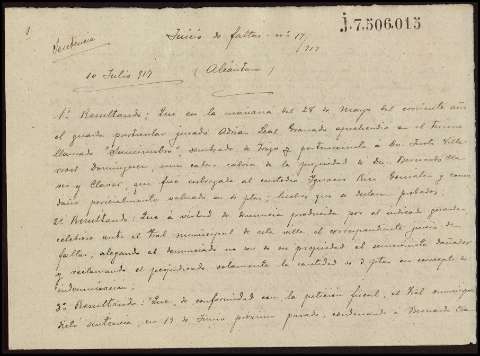 1
J.7.506.015
Sentencia
Juicio de faltas - nº 17/917
10 Julio 917 (Alcántara)
1º Resultando: Que en la mañana del 28 de Mayo del corriente año
el guarda particular jurado Adrian Leal Granado aprehendió en el terreno
llamado " sembrado de trigo y perteneciente á Dn.
Dominguez, una cabra de la propiedad de Dn. Bernardo
y Claver, que fué entregada al custodio Ignacio Ruiz Gonzalez y cuyo
daño pericialmente valuado en ptas; hechos que se declaran probados;
2º Resultando: Que á virtud de denuncia producida por el indicado guarda,
celebróse ante el Tral municipal de esta villa el correspondiente juicio de
faltas, alegando el denunciado no ser de su propiedad el semoviente dañador
y reclamando el perjudicado solamente la cantidad de 3 ptas en concepto de
indemnización;
3º Resultando: Que, de conformidad con la petición fiscal, el Tral municipal
dictó sentencia, en 13 de Junio próximo pasado, condenando á Bernardo